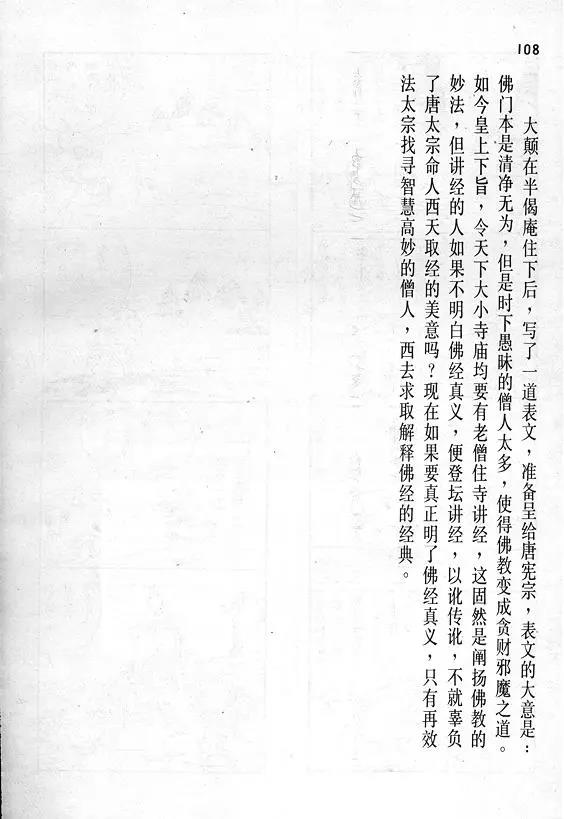 108
大颠在半偈庵住下后，写了一道表文，准备呈给唐宪宗，表文的大意是：
佛门本是清净无为，但是时下愚昧的僧人太多，使得佛教变成贪财邪魔之道。
如今皇上下旨，令天下大小寺庙均要有老僧住寺讲经，这固然是阐扬佛教的
妙法，但讲经的人如果不明白佛经真义，便登坛讲经，以讹传讹，不就辜负
了唐太宗命人西天取经的美意吗？现在如果要真正明了佛经真义，只有再效
法太宗找寻智慧高妙的僧人，西去求取解释佛经的经典。